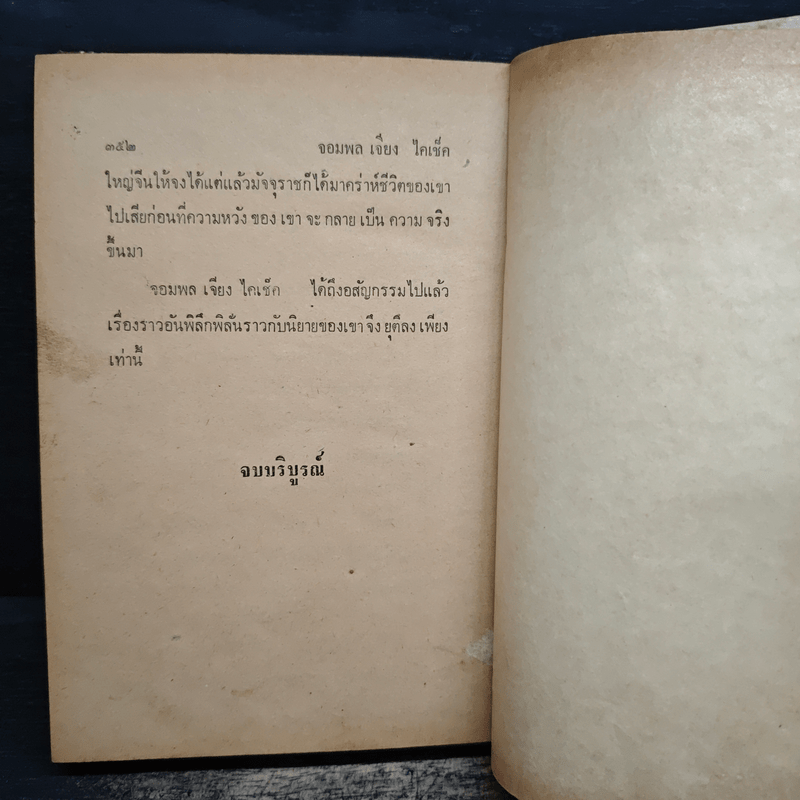 ๓๕๒ จอมพล เจียง ไคเช็ค
ใหญ่จีนให้จงได้แต่แล้วมัจจุราชก็ได้มาคร่าห์ชีวิตของเขา
ไปเสียก่อนที่ความหวัง ของ เขา จะ กลาย เป็น ความ จริง
ขึ้นมา
จอมพล เจียง ไคเช็ค ได้ถึงอสัญกรรมไปแล้ว
เรื่องราวอันพิลึกพิลั่นราวกับนิยายของเขา จึง ยุตีลง เพียง
เท่านี้
จบบริบูรณ์